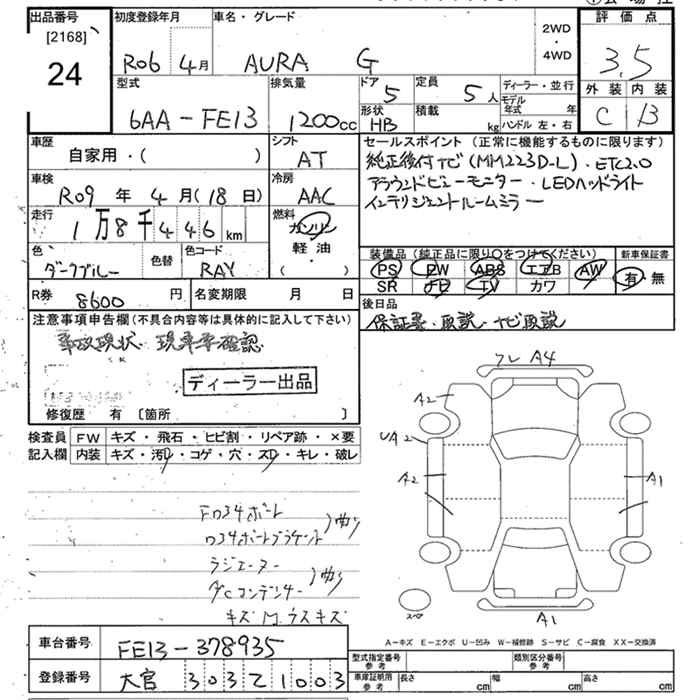 出品番号
[2168]
24
初度登録年月
R06 4月
車名・グレード
AURA G
2WD
・
4WD
評価点
3.5
外装 内装
C B
型式
6AA-FE13
排気量
1200cc
ドア
5
定員
5人
形状
HB
積載
kg
ディーラー・並行
モデル年式 年
ハンドル 左・右
車歴
自家用・( )
シフト
AT
車検
R09年 4月(18日)
冷房
AAC
走行
1万8千446km
燃料
ガソリン
軽・油
( )
色
ダークブルー
色替
色コード
RAY
R券
8600円
名変期限 月 日
セールスポイント(正常に機能するものに限ります)
純正後付ナビ(MM223D-L)・ETC2.0
アラウンドビューモニター・LEDヘッドライト
インテリジェントルームミラー
装備品(純正品に限り○をつけてください)
PS PW ABS エアB AW
SR ナビ TV カワ
新車保証書
有・無
後日品
保証書・取説・ナビ取説
注意事項申告欄(不具合内容等は具体的に記入して下さい)
事故現状 現車要確認
ディーラー出品
修復歴 有 〔箇所 〕
検査員記入欄
FW キズ・飛石・ヒビ割・リペア跡・×要
内装 キズ・汚・コゲ・穴・スレ・キレ・破レ
ラジエーター
コンデンサー
キズ M ウスキズ
フレ A4
A2
UA2
A2
A1
A1
スペア
A−キズ E−エクボ U−凹み W−補修跡 S−サビ C−腐食 XX−交換済
車台番号
FE13-378935
登録番号
大宮 303 1003
型式指定番号
参考
類別区分番号
参考
車庫証明用
参考
長さ cm
幅 cm
高さ cm